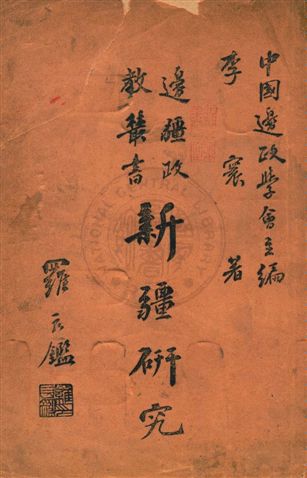 中國邊政學會主編
李寰著
邊疆政
教叢書
新疆研究
羅元鑑
NATIONAL CENTRAL LIBRARY